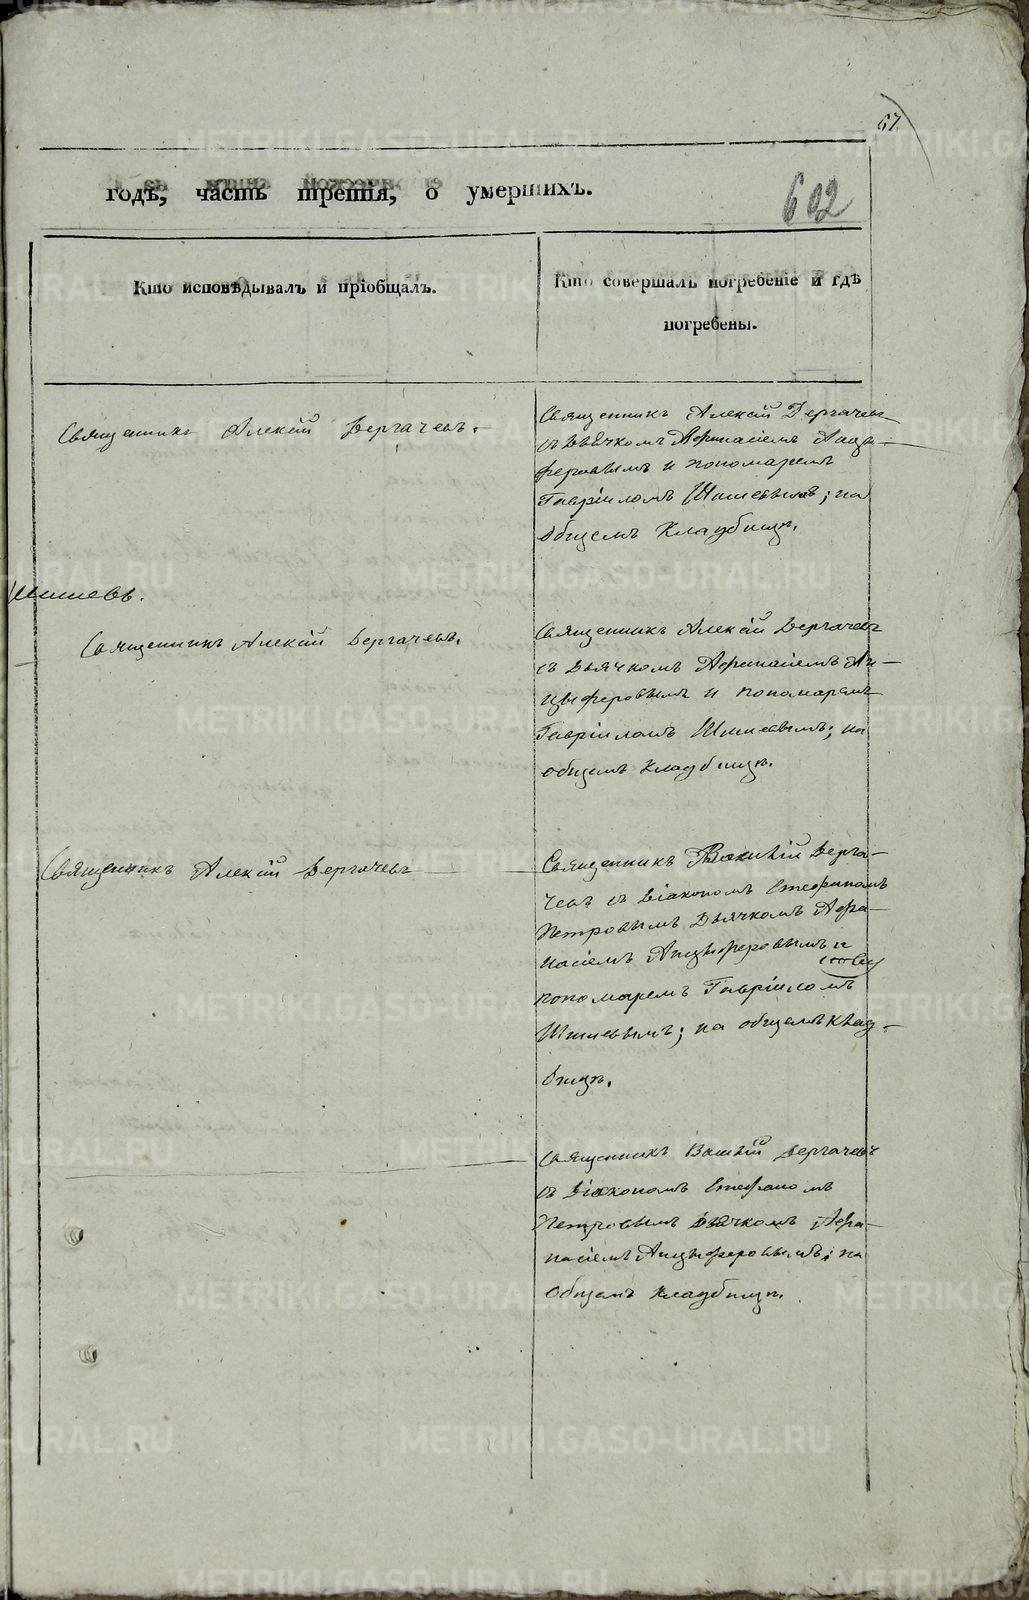 67
годѣ, часть третія, о умершихъ.
602
Кто исповѣдывалъ и пріобщалъ.
Кто совершалъ погребеніе и гдѣ
погребены.
Священникъ Алексій Дергачевъ.
Священникъ Алексій Дергачевъ
съ Дьячкомъ Афанасіемъ Анци-
феровымъ и пономаремъ
Гавріиломъ Шишевымъ; на
общемъ Кладбищѣ.
Шишевъ.
Священникъ Алексій Дергачевъ.
Священникъ Алексій Дергачевъ
съ Дьячкомъ Афанасіемъ Ан-
цыферовымъ и пономаремъ
Гавріиломъ Шишевымъ; на
общемъ Кладбищѣ.
Священникъ Алексій Дергачевъ
Священникъ Василій Дерга-
чевъ съ Діакономъ Стефаномъ
Петровымъ Дьячкомъ Афа-
насіемъ Анцыферовымъ и
пономаремъ Гавріиломъ
Шишевымъ; на общемъ Клад-
бищѣ.
Священникъ Василій Дергачевъ
съ Діакономъ Стефаномъ
Петровымъ Дьячкомъ Афа-
насіемъ Анцыферовымъ; на
общемъ Кладбищѣ.
METRIKI.GASO-URAL.RU